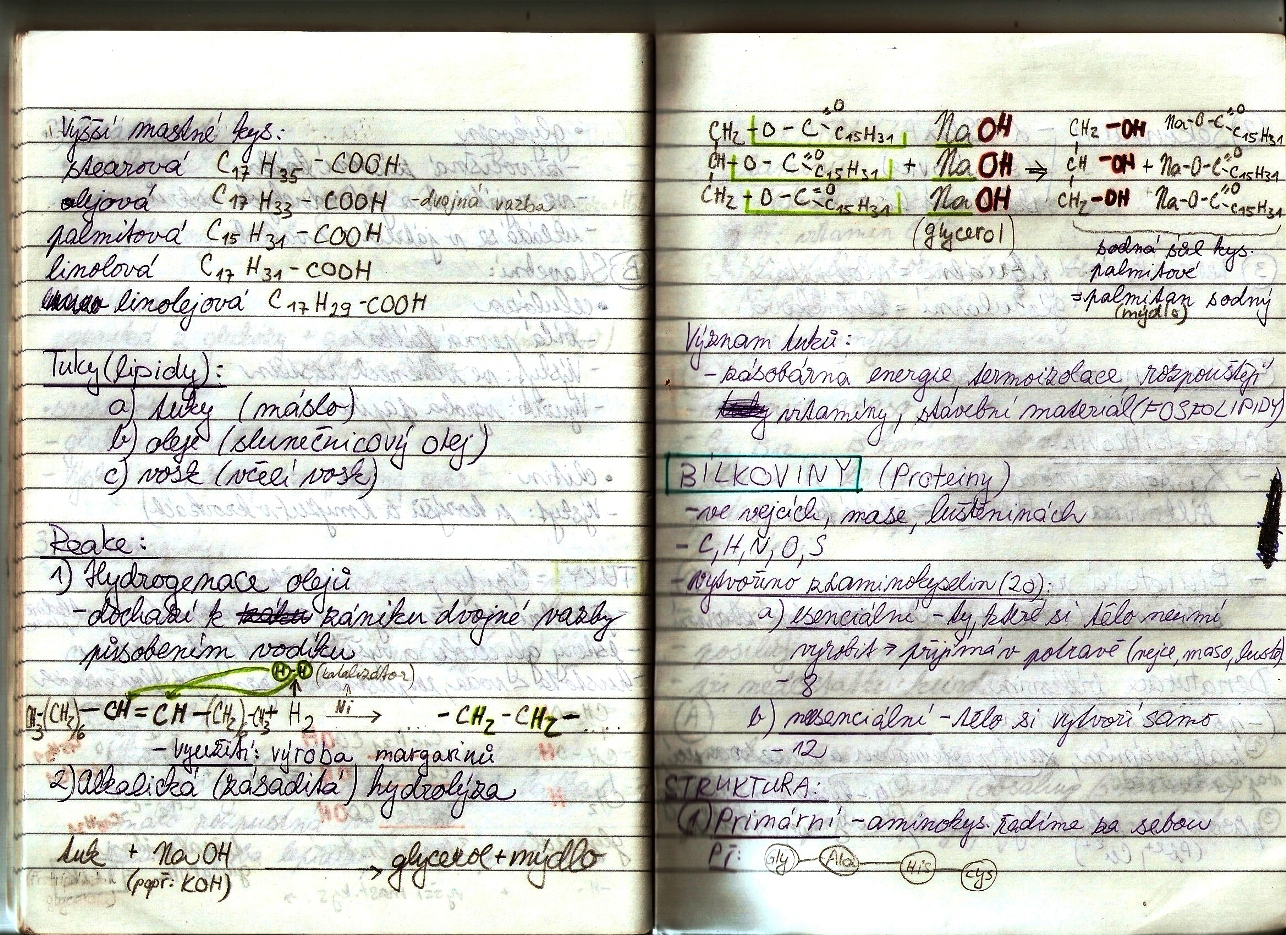 Vyšší mastné kys:
stearová C17H35-COOH
olejová C17H33-COOH -dvojná vazba
palmitová C15H31-COOH
linolová C17H31-COOH
linolejová C17H29-COOH
Tuky (lipidy):
a) tuky (máslo)
b) oleje (slunečnicový olej)
c) vosk (včelí vosk)
Reakce:
1) Hydrogenace olejů
-dochází k zániku dvojné vazby
působením vodíku
H H (katalizátor)
CH3(CH2)6-CH=CH-(CH2) CH3 + H2 Ni → -CH2-CH2-
- využití: výroba margarinů
2) Alkalická (zásaditá) hydrolýza
tuk + NaOH → glycerol + mýdlo
(popř: KOH)
CH2-O-C=O C15H31 NaOH CH2-OH Na-O-C=O C15H31
CH-O-C=O C15H31 + NaOH ⇒ CH-OH + Na-O-C=O C15H31
CH2-O-C=O C15H31 NaOH CH2-OH Na-O-C=O C15H31
(glycerol)
sodná sůl kys.
palmitové
=palmitan sodný
(mýdlo)
Význam tuků:
-zásobárna energie, termoizolace, rozpouštějí
vitamíny, stavební materiál (FOSFOLIPIDY)
BÍLKOVINY (Proteiny)
-ve vejcích, mase, luštěninách
- C, H, N, O, S
-vytvořeno z aminokyselin (20):
a) esenciální - ty, které si tělo neumí
vyrobit → přijímá v potravě (vejce, maso, luště
- 8
b) nesenciální - tělo si vytvoří samo
- 12
STRUKTURA:
(1) Primární - aminokys. řadíme za sebou
Př: Gly Ala His Cys